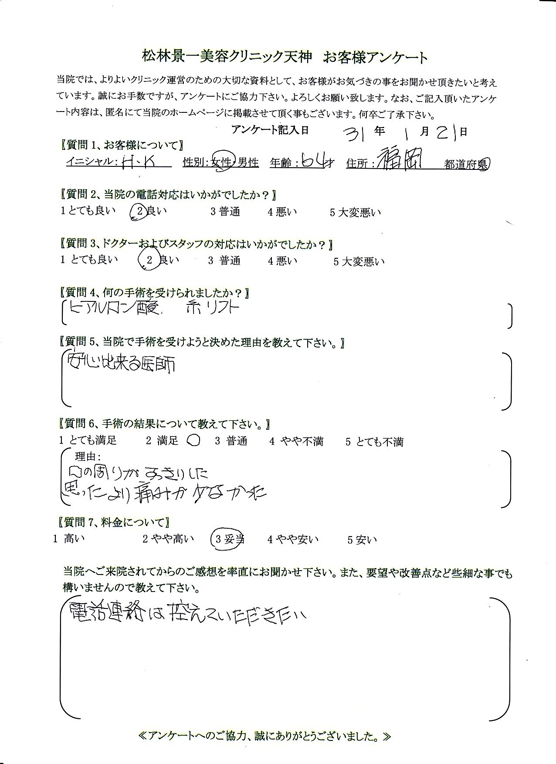 松林景一美容クリニック天神　お客様アンケート
当院では、よりよいクリニック運営のための大切な資料として、お客様がお気づきの事をお聞かせ頂きたいと考え
ています。誠にお手数ですが、アンケートにご協力下さい。よろしくお願い致します。なお、ご記入頂いたアンケ
ート内容は、匿名にて当院のホームページに掲載させて頂く事もございます。何卒ご了承下さい。
アンケート記入日　31 年 1 月 21 日
〖質問 1、お客様について〗
イニシャル：H・K　性別：女性・男性　年齢：64才　住所：福岡　都道府県
〖質問 2、当院の電話対応はいかがでしたか？〗
1 とても良い　2 良い　3 普通　4 悪い　5 大変悪い
〖質問 3、ドクターおよびスタッフの対応はいかがでしたか？〗
1 とても良い　2 良い　3 普通　4 悪い　5 大変悪い
〖質問 4、何の手術を受けられましたか？〗
ヒアルロン酸．糸リフト
〖質問 5、当院で手術を受けようと決めた理由を教えて下さい。〗
安心出来る医師
〖質問 6、手術の結果について教えて下さい。〗
1 とても満足　2 満足　3 普通　4 やや不満　5 とても不満
理由：
口の周りがすっきりした
思ったより痛みが少なかった
〖質問 7、料金について〗
1 高い　2 やや高い　3 妥当　4 やや安い　5 安い
当院へご来院されてからのご感想を率直にお聞かせ下さい。また、要望や改善点など些細な事でも
構いませんので教えて下さい。
電話連絡は控えていただきたい
≪アンケートへのご協力、誠にありがとうございました。≫